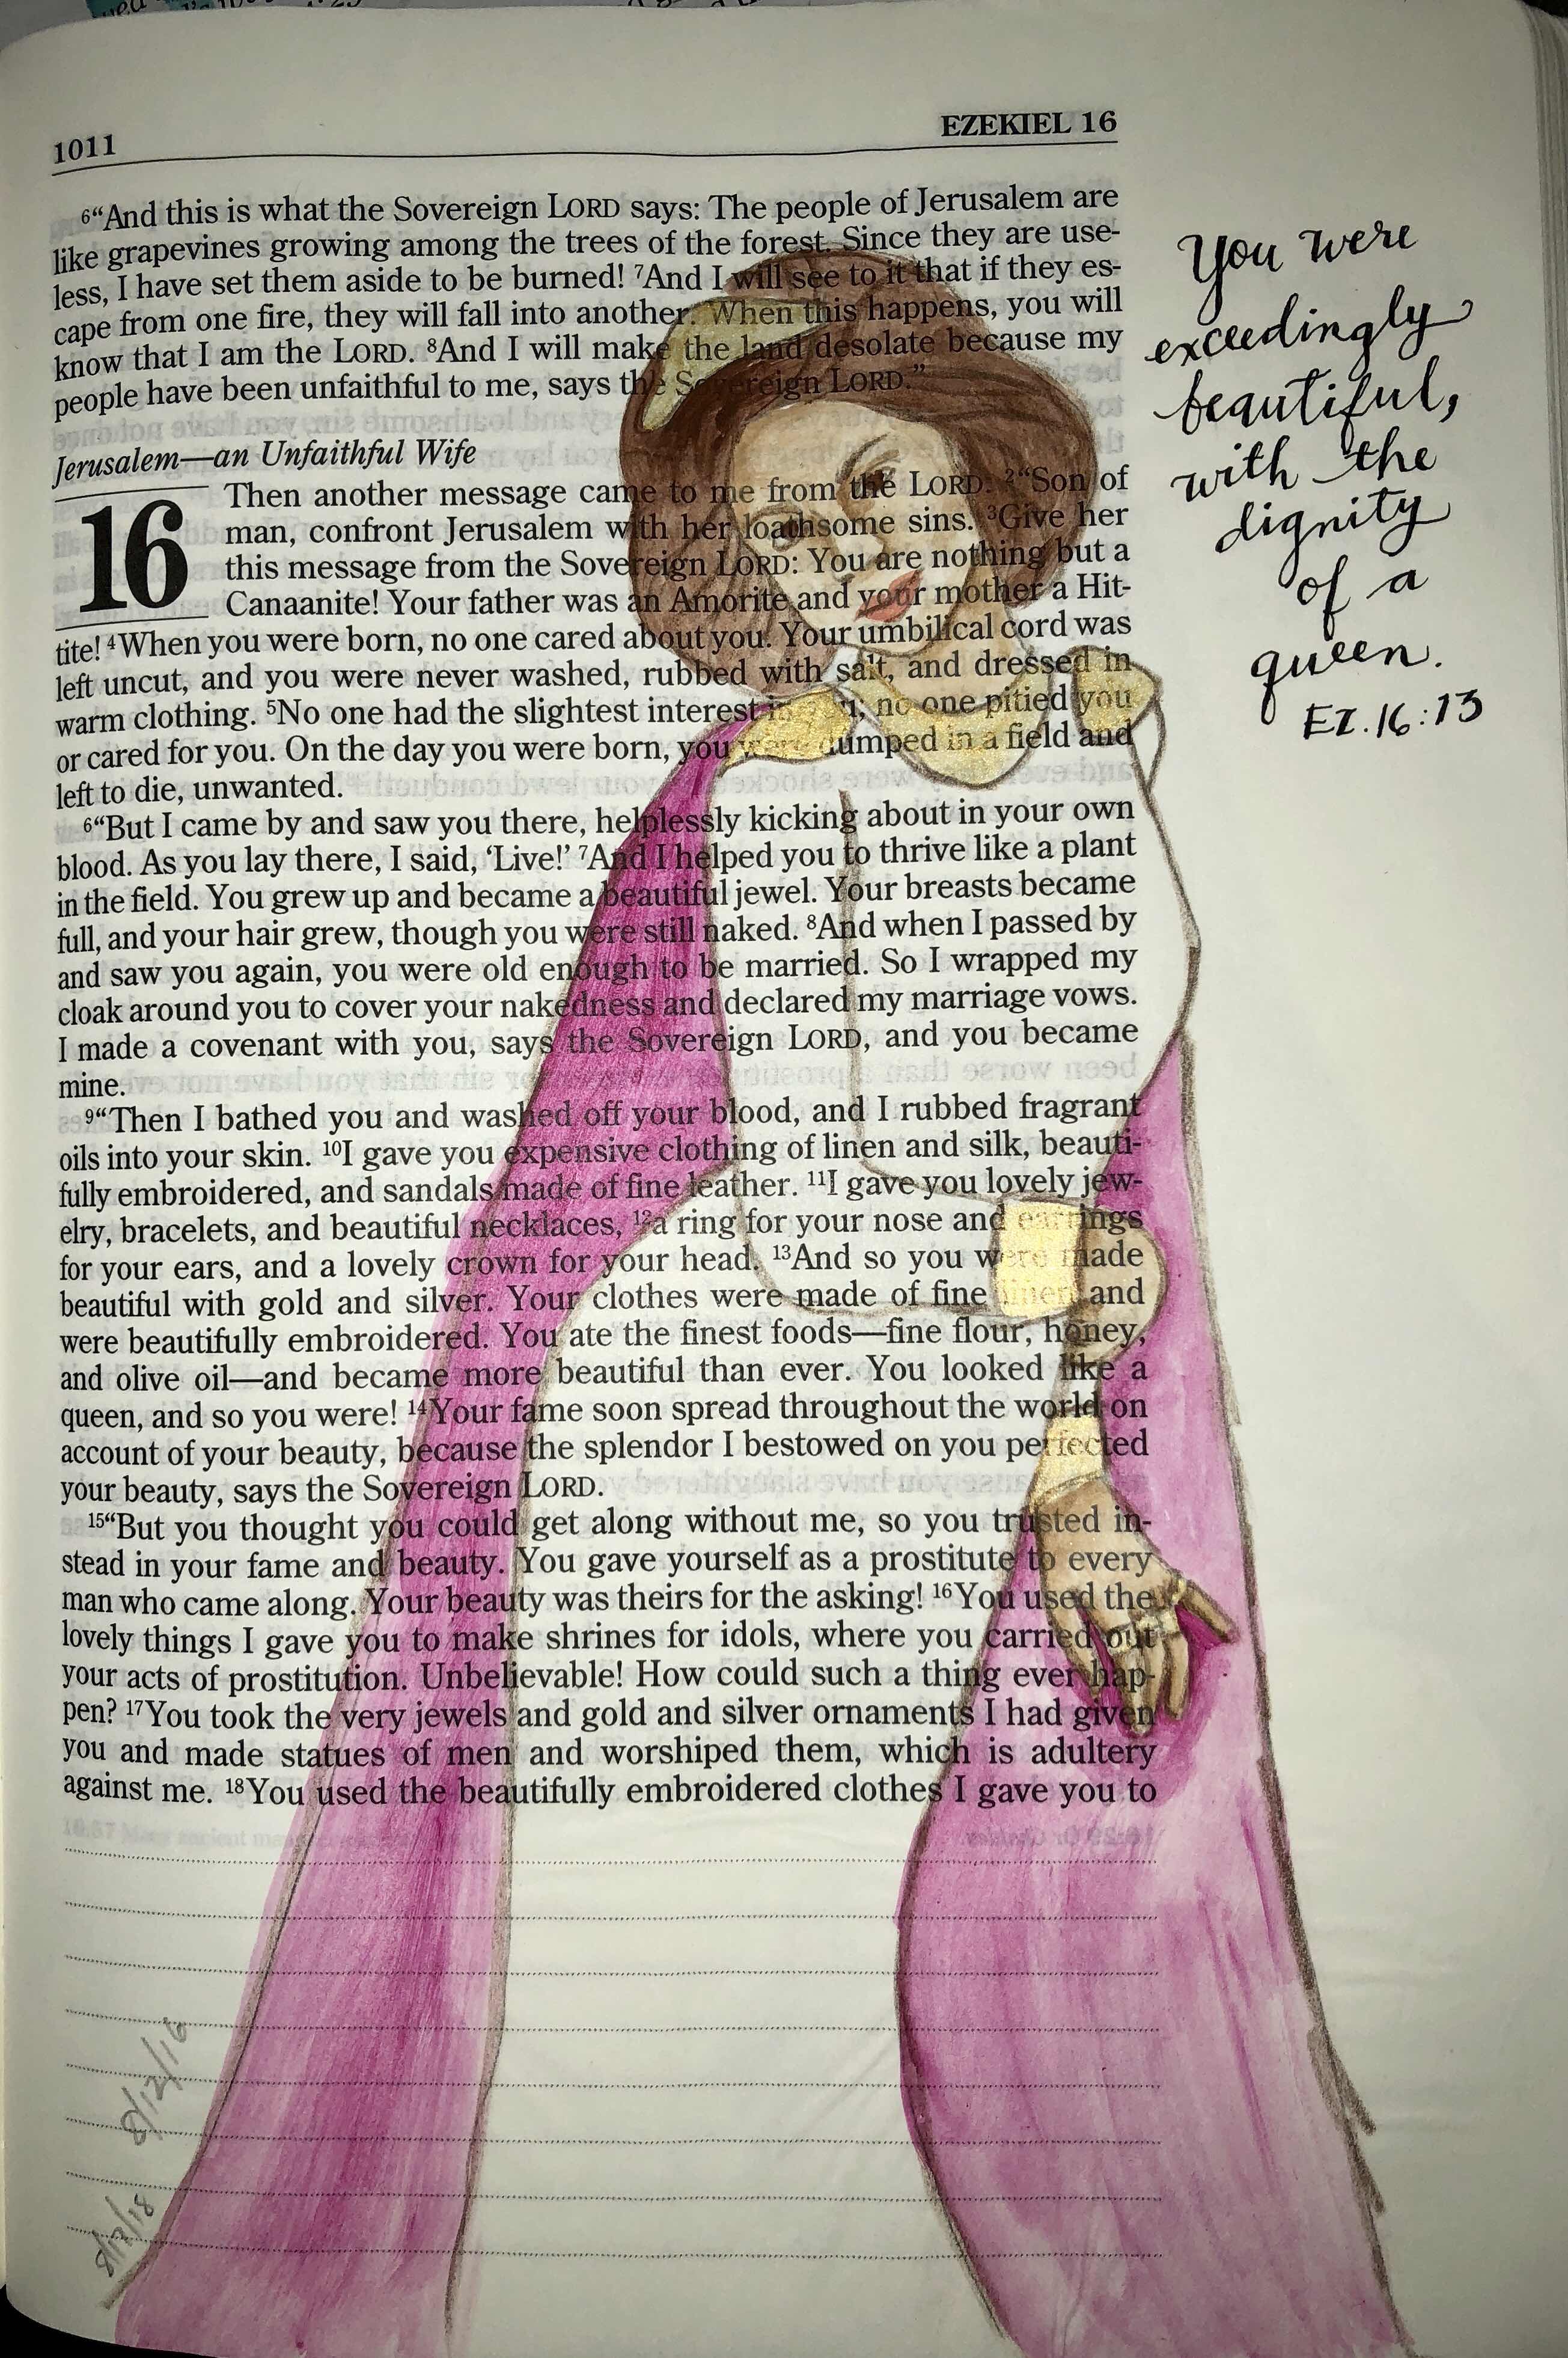 1011
EZEKIEL 16
6“And this is what the Sovereign LORD says: The people of Jerusalem are
like grapevines growing among the trees of the forest. Since they are use-
less, I have set them aside to be burned! 7And I will see to it that if they es-
cape from one fire, they will fall into another. When this happens, you will
know that I am the LORD. 8And I will make the land desolate because my
people have been unfaithful to me, says the Sovereign LORD.”
Jerusalem—an Unfaithful Wife
16 Then another message came to me from the LORD: 2“Son of
man, confront Jerusalem with her loathsome sins. 3Give her
this message from the Sovereign LORD: You are nothing but a
Canaanite! Your father was an Amorite and your mother a Hit-
tite! 4When you were born, no one cared about you. Your umbilical cord was
left uncut, and you were never washed, rubbed with salt, and dressed in
warm clothing. 5No one had the slightest interest in you; no one pitied you
or cared for you. On the day you were born, you were dumped in a field and
left to die, unwanted.
6“But I came by and saw you there, helplessly kicking about in your own
blood. As you lay there, I said, ‘Live!’ 7And I helped you to thrive like a plant
in the field. You grew up and became a beautiful jewel. Your breasts became
full, and your hair grew, though you were still naked. 8And when I passed by
and saw you again, you were old enough to be married. So I wrapped my
cloak around you to cover your nakedness and declared my marriage vows.
I made a covenant with you, says the Sovereign LORD, and you became
mine.
9“Then I bathed you and washed off your blood, and I rubbed fragrant
oils into your skin. 10I gave you expensive clothing of linen and silk, beauti-
fully embroidered, and sandals made of fine leather. 11I gave you lovely jew-
elry, bracelets, and beautiful necklaces, 12a ring for your nose and earrings
for your ears, and a lovely crown for your head. 13And so you were made
beautiful with gold and silver. Your clothes were made of fine linen and
were beautifully embroidered. You ate the finest foods—fine flour, honey,
and olive oil—and became more beautiful than ever. You looked like a
queen, and so you were! 14Your fame soon spread throughout the world on
account of your beauty, because the splendor I bestowed on you perfected
your beauty, says the Sovereign LORD.
15“But you thought you could get along without me, so you trusted in-
stead in your fame and beauty. You gave yourself as a prostitute to every
man who came along. Your beauty was theirs for the asking! 16You used the
lovely things I gave you to make shrines for idols, where you carried out
your acts of prostitution. Unbelievable! How could such a thing ever hap-
pen? 17You took the very jewels and gold and silver ornaments I had given
you and made statues of men and worshiped them, which is adultery
against me. 18You used the beautifully embroidered clothes I gave you to
You were
exceedingly
beautiful,
with the
dignity
of a
queen.
EZ. 16:13
8/12/16